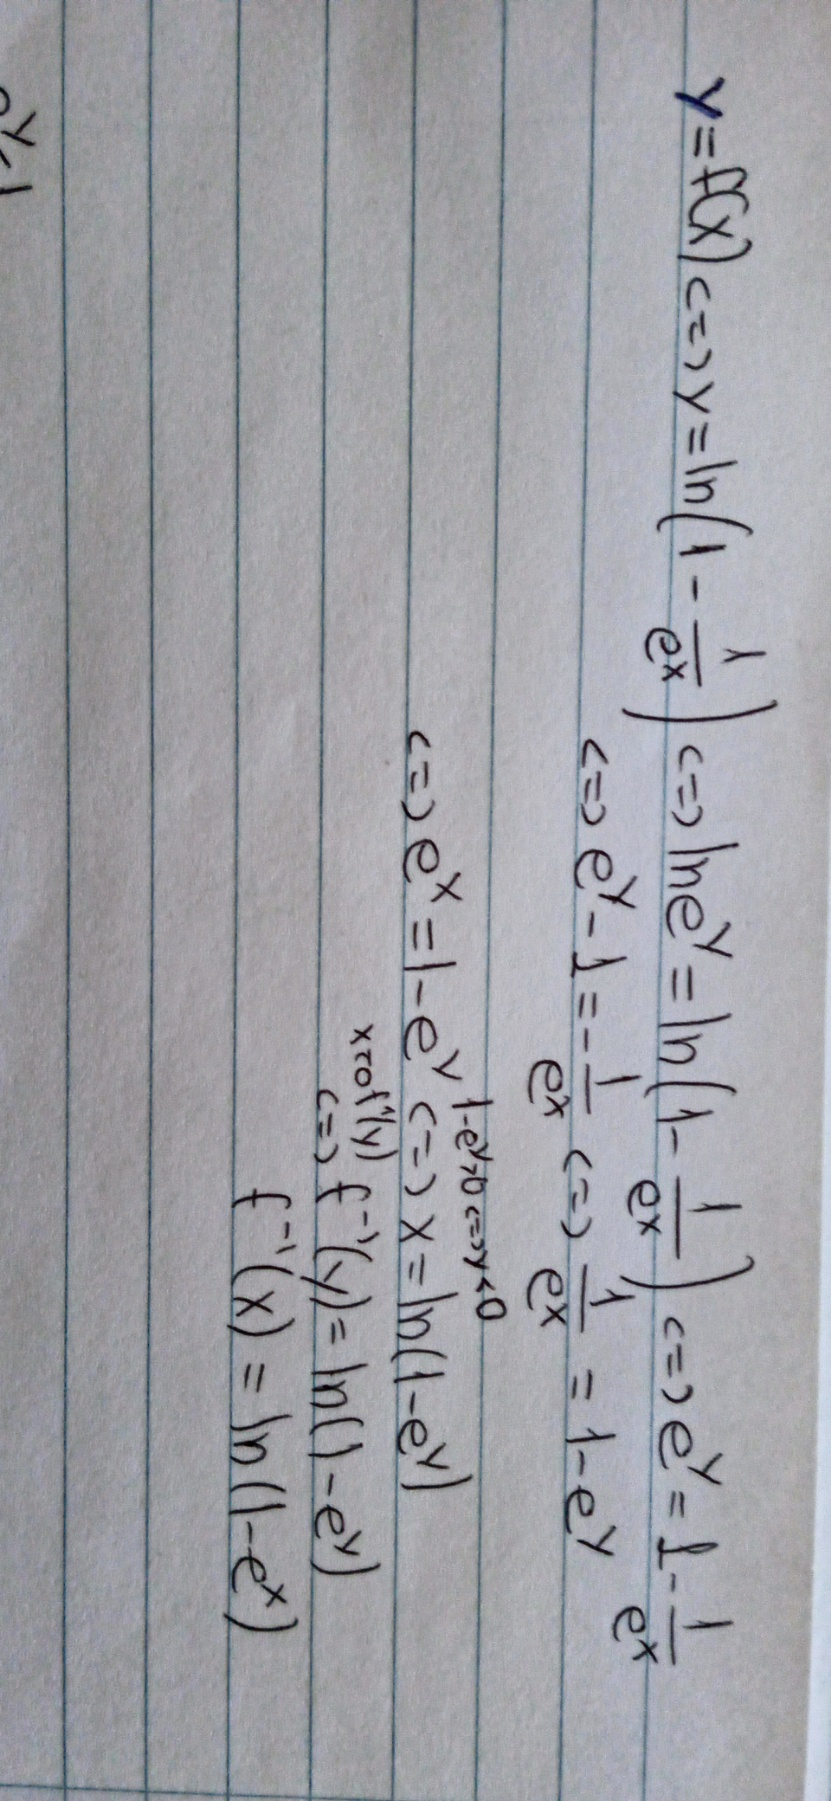 y = f(x) <=> y = ln(1 - 1/e^x) <=> ln e^y = ln(1 - 1/e^x) <=> e^y = 1 - 1/e^x
<=> e^y - 1 = - 1/e^x <=> 1/e^x = 1 - e^y
1-e^y>0 <=> y<0
<=> e^x = 1 - e^y <=> x = ln(1-e^y)
<=> f^-1(y) = ln(1-e^y)
f^-1(x) = ln(1-e^x)